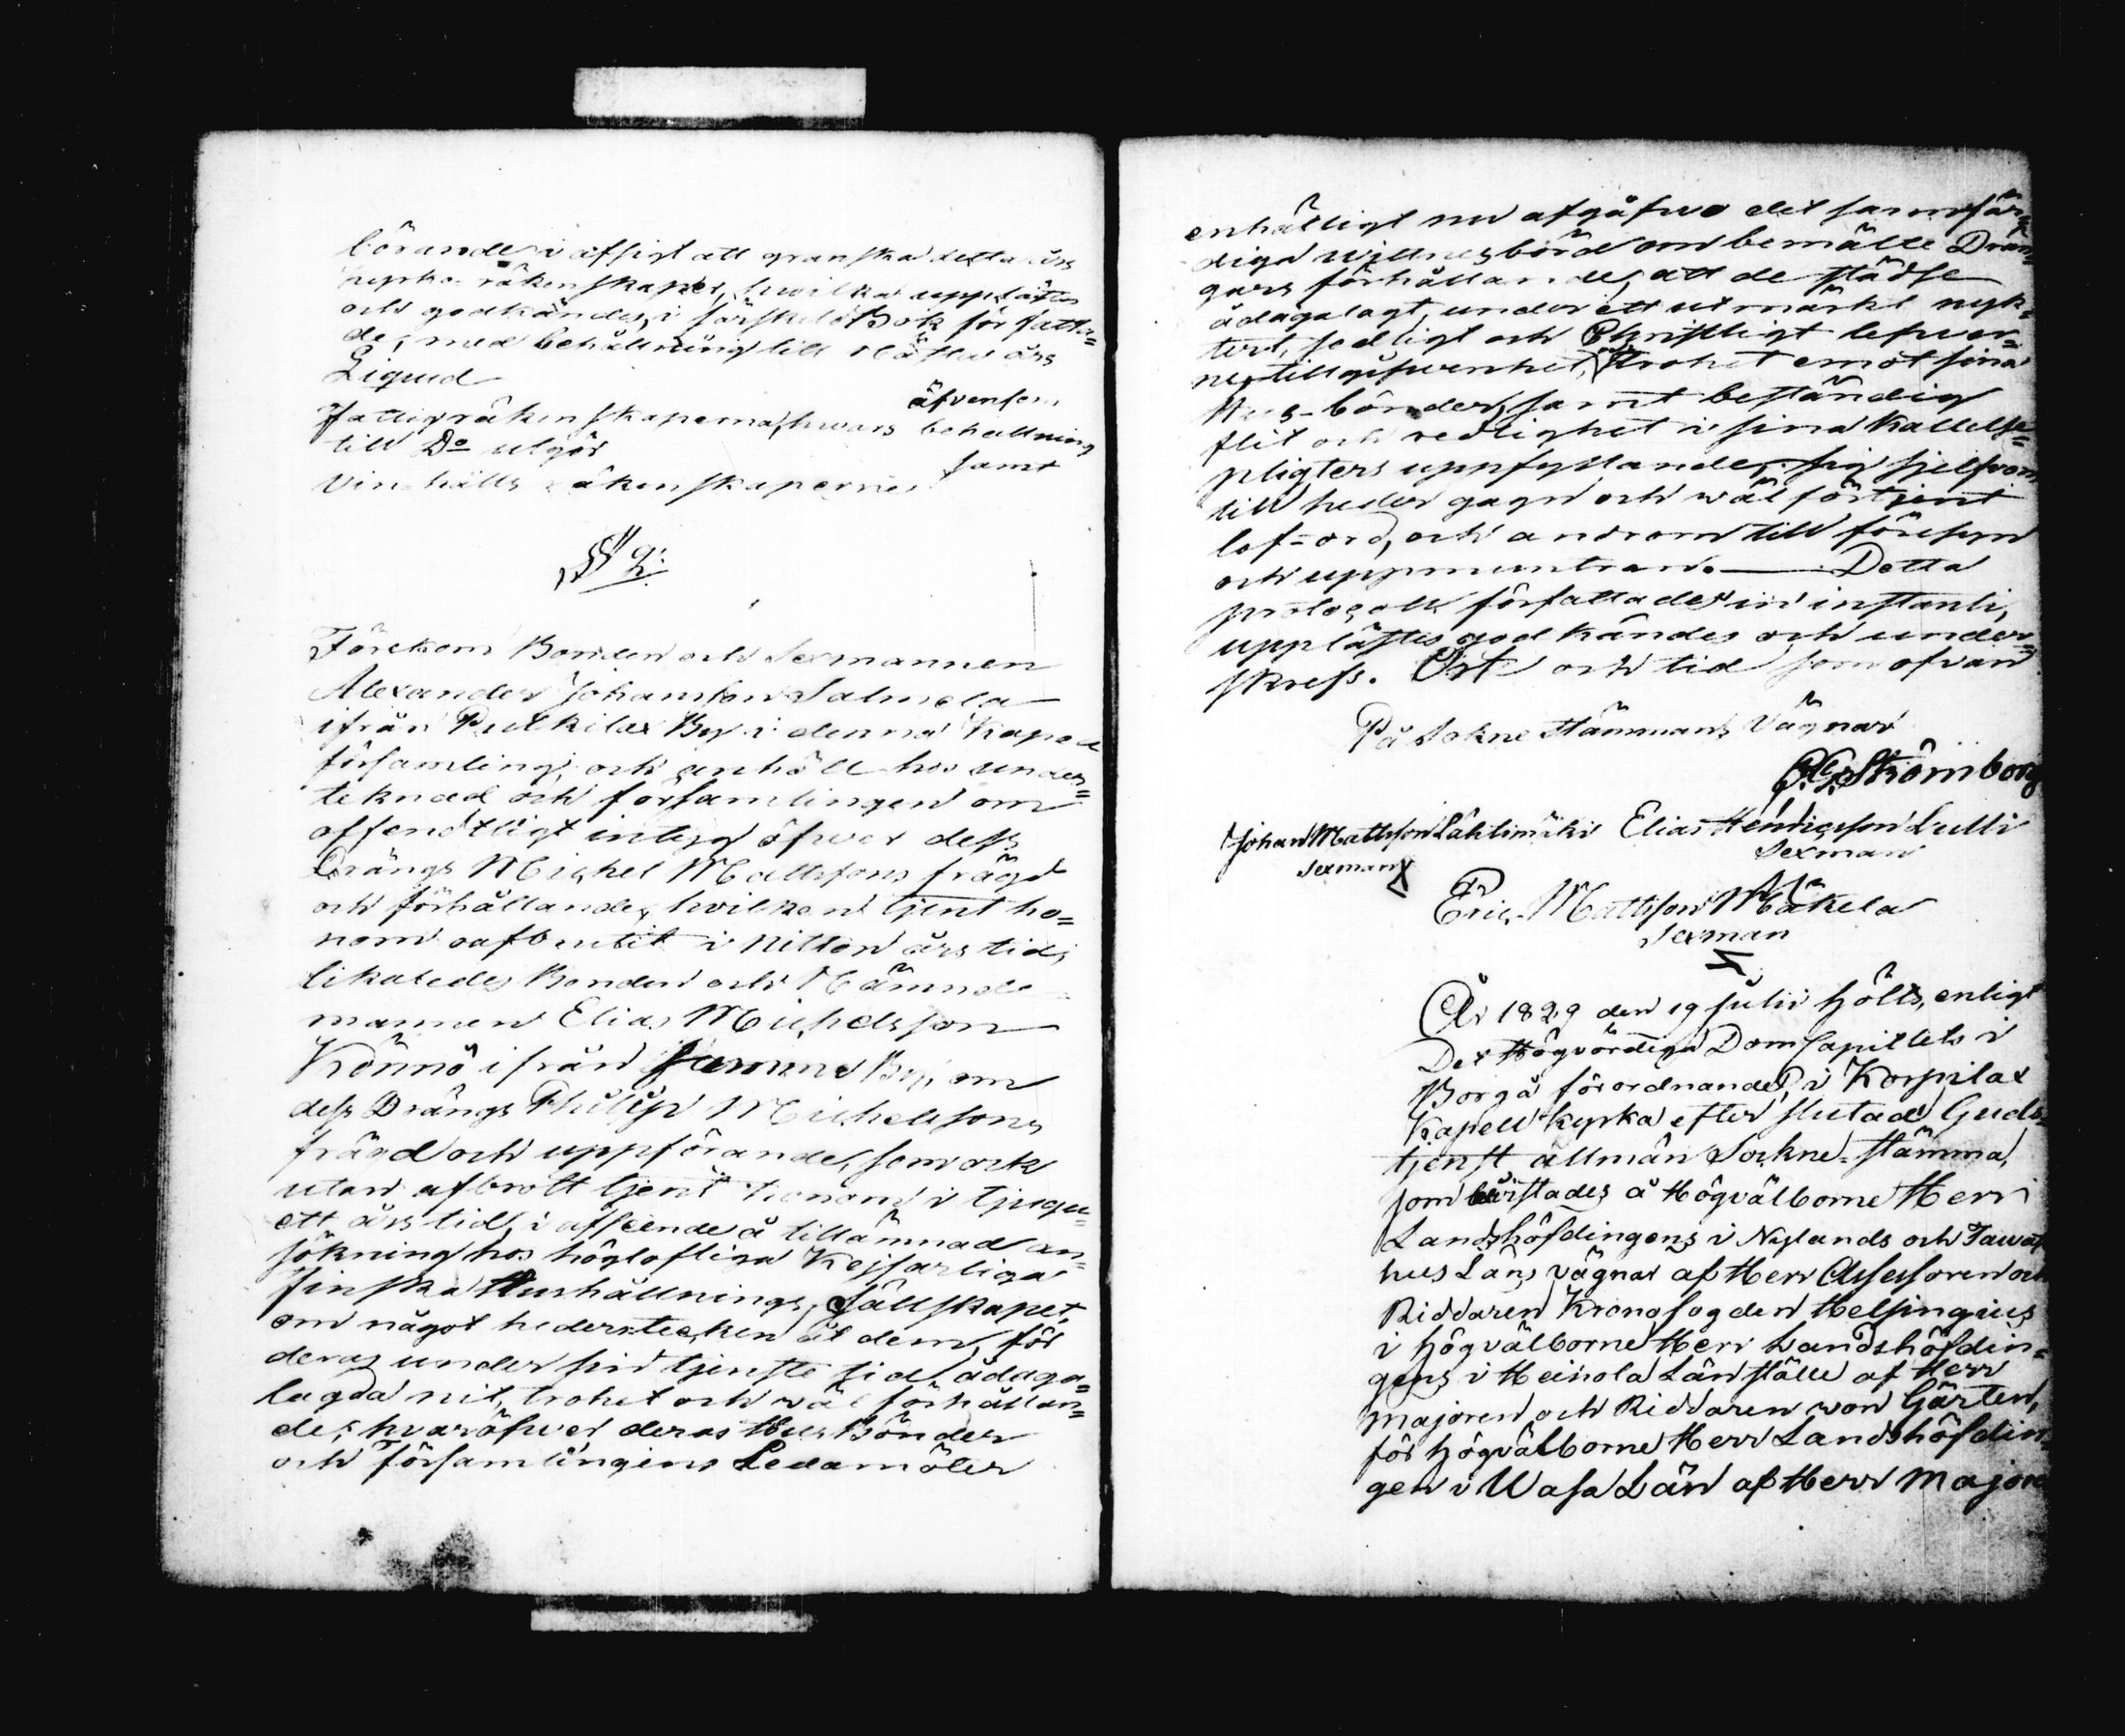 börande i afsigt att granska detta års
kyrko räkenskaper, hwilka upplästes
och godkändes, i särskild Bok för fatta=
de, med behållning till nästa års
Liquid
äfvensom
Fattigräkenskaperna, hwars behållning
till Do utgör
samt
Vinehålls räkenskaperne
§ 2:
Förekom Bonden och Sexmannen
Alexander Johansson Salmela
ifrån Putkilax By i denna Kapell
församling, och anhöll hos under=
teknad och församlingen om
offendtligt intyg öfwer dess
Drängs Michel Mattssons frägd
och förhållande, hvilken tjent ho=
nom oafbrutit i nitton års tid;
likaledes Bonden och Nämnde
mannen Elias Michelsson
Könnö ifrån samma By, om
dess Drängs Philip Michelssons
frägd och uppförande, som ock
utan afbrott tjent honom i tjugu=
ett års tid, i afseende å tillämnad an=
sökning hos höglofliga Kejserliga
finska Hushållnings Sällskapet,
om något hederstecken åt dem, för
deras under sin tjenste tid ådaga=
lagda nit, trohet och wäl förhållan=
de; hvaröfwer deras Husbönder
och Församlingens Ledamöter
enhälligt nu afgåfwo det sannfär=
diga wittnesbörd om bemälte Drän=
gars förhållande, att de städse
ådagalagt, under ett utmärkt nyk=
tert, sedligt och Christligt lefwer=
ne, tillgifwenhet, trohet emot sina
Hus-bönder, samt beständig
flit och redlighet i sina Kallelse=
pligters uppfyllande, sig sjelfwom
till heder gagn och wäl förtjent
lof-ord, och androm till föresyn
och uppmuntran. — Detta
protocoll författades in instanti,
upplästes godkändes och under=
skrefs. Ort och tid som ofvan
På Sokne Stämmans Vägnar
Strömborg
Johan Mattsson Lähtimäki Elias Hendricsson Lulli
Sexman Sexman
Eric Mattsson Mäkelä
Sexman
År 1829 den 19 Julii hölts, enligt
Det Högvördiga DomCapitlets i
Borgå förordnande, i Korpilax
Kapell kyrka efter slutad Guds=
tjenst allmän Sockne-stämma,
som bevistades å Högvälborne Herr
Landshöfdingens i Nylands och Tawast
hus Läns vägnar af Herr Assessoren och
Riddaren Kronofogden Helsingius
i högvälborne Herr Landshöfdin=
gens i Heinola Län ställe af Herr
majoren och Riddaren von Gärten,
för högvälborne Herr Landshöfdin=
gen i Wasa Län af Herr Majoren